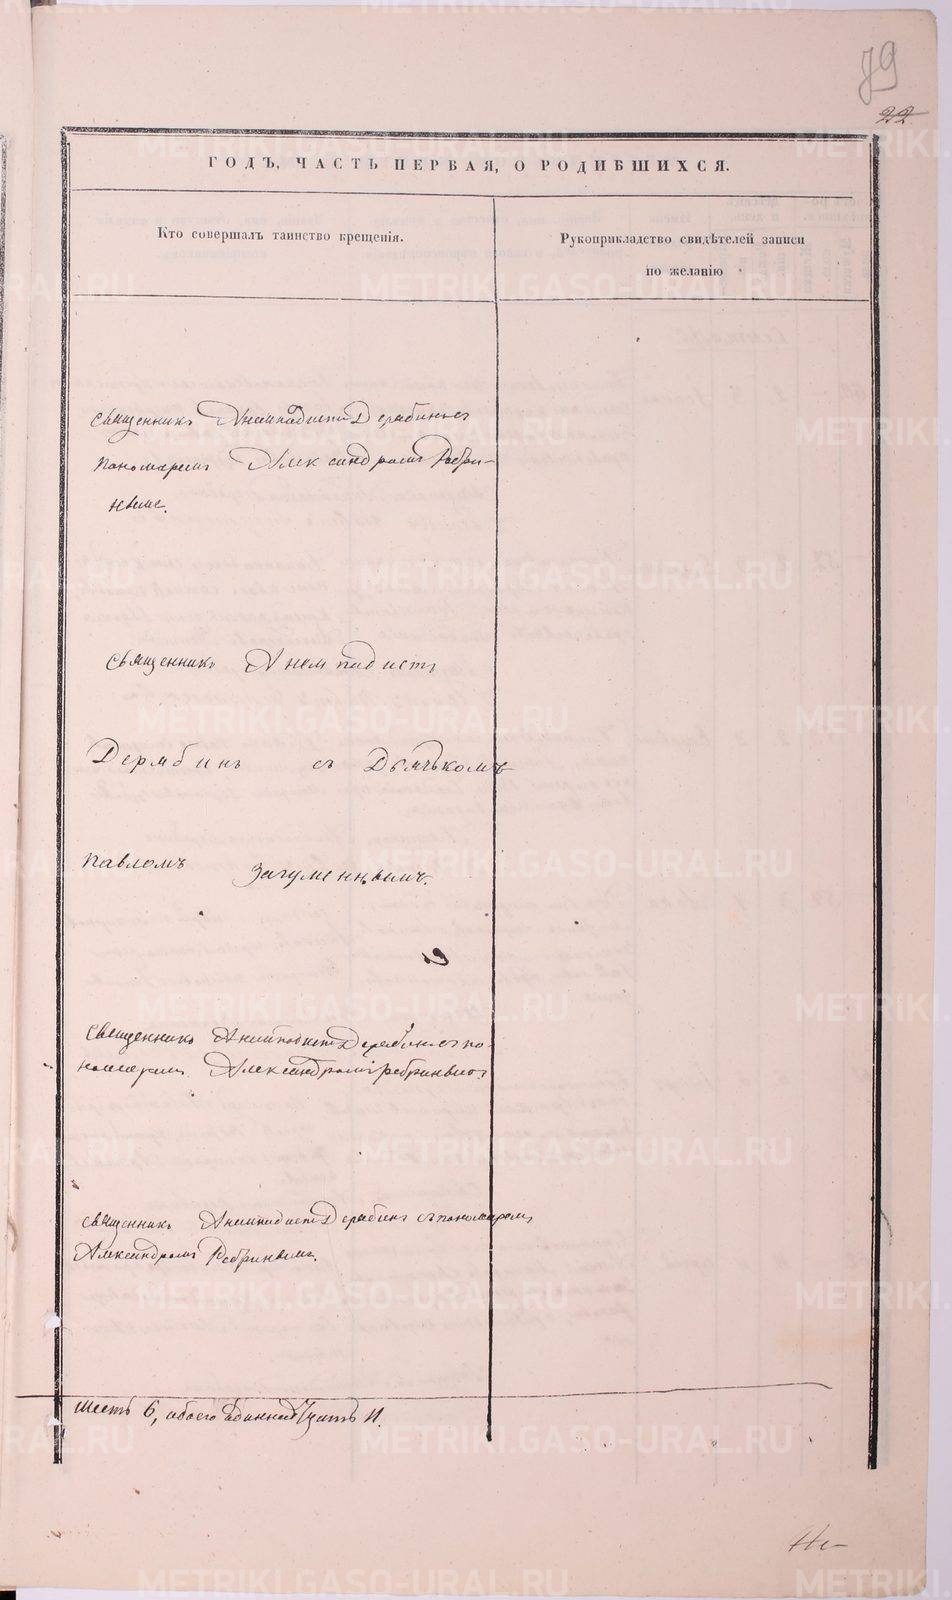 79
22
ГОДЪ, ЧАСТЬ ПЕРВАЯ, О РОДИВШИХСЯ.
Кто совершалъ таинство крещенія.
Рукоприкладство свидѣтелей записи
по желанію
Священникъ Анемподистъ Дерябинъ съ
пономаремъ Александромъ Ребри-
нымъ.
Священникъ Анемподистъ
Дерябинъ съ Дьячькомъ
Павломъ Загуменнымъ.
Священникъ Анемподистъ Дерябинъ съ по-
номаремъ Александромъ Ребринымъ
Священникъ Анемподистъ Дерябинъ съ пономаремъ
Александромъ Ребринымъ.
шесть 6, обоего одиннадцать 11.
METRIKI.GASO-URAL.RU